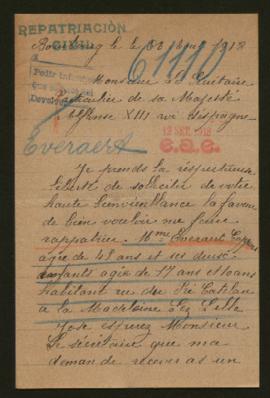 REPATRIACIÓN
CIVIL
61110
1918
Pedir informes
Monsieur le
Particulier de sa Majesté
Alfonse XIII roi d'Espagne
12 SET. 1918
Everaert
e.a.e.
Je prends la respectueuse
liberté de solliciter de votre
haute bienveillance la faveur
de bien vouloir me faire
rappatrier. Mme Everaert
agée de 43 ans et ses deux
enfants agés de 17 ans et 10 ans
habitant rue du Pré Catelan
à la Madeleine Lez Lille
J'ose espérer Monsieur
le secrétaire que ma
demande recevera un